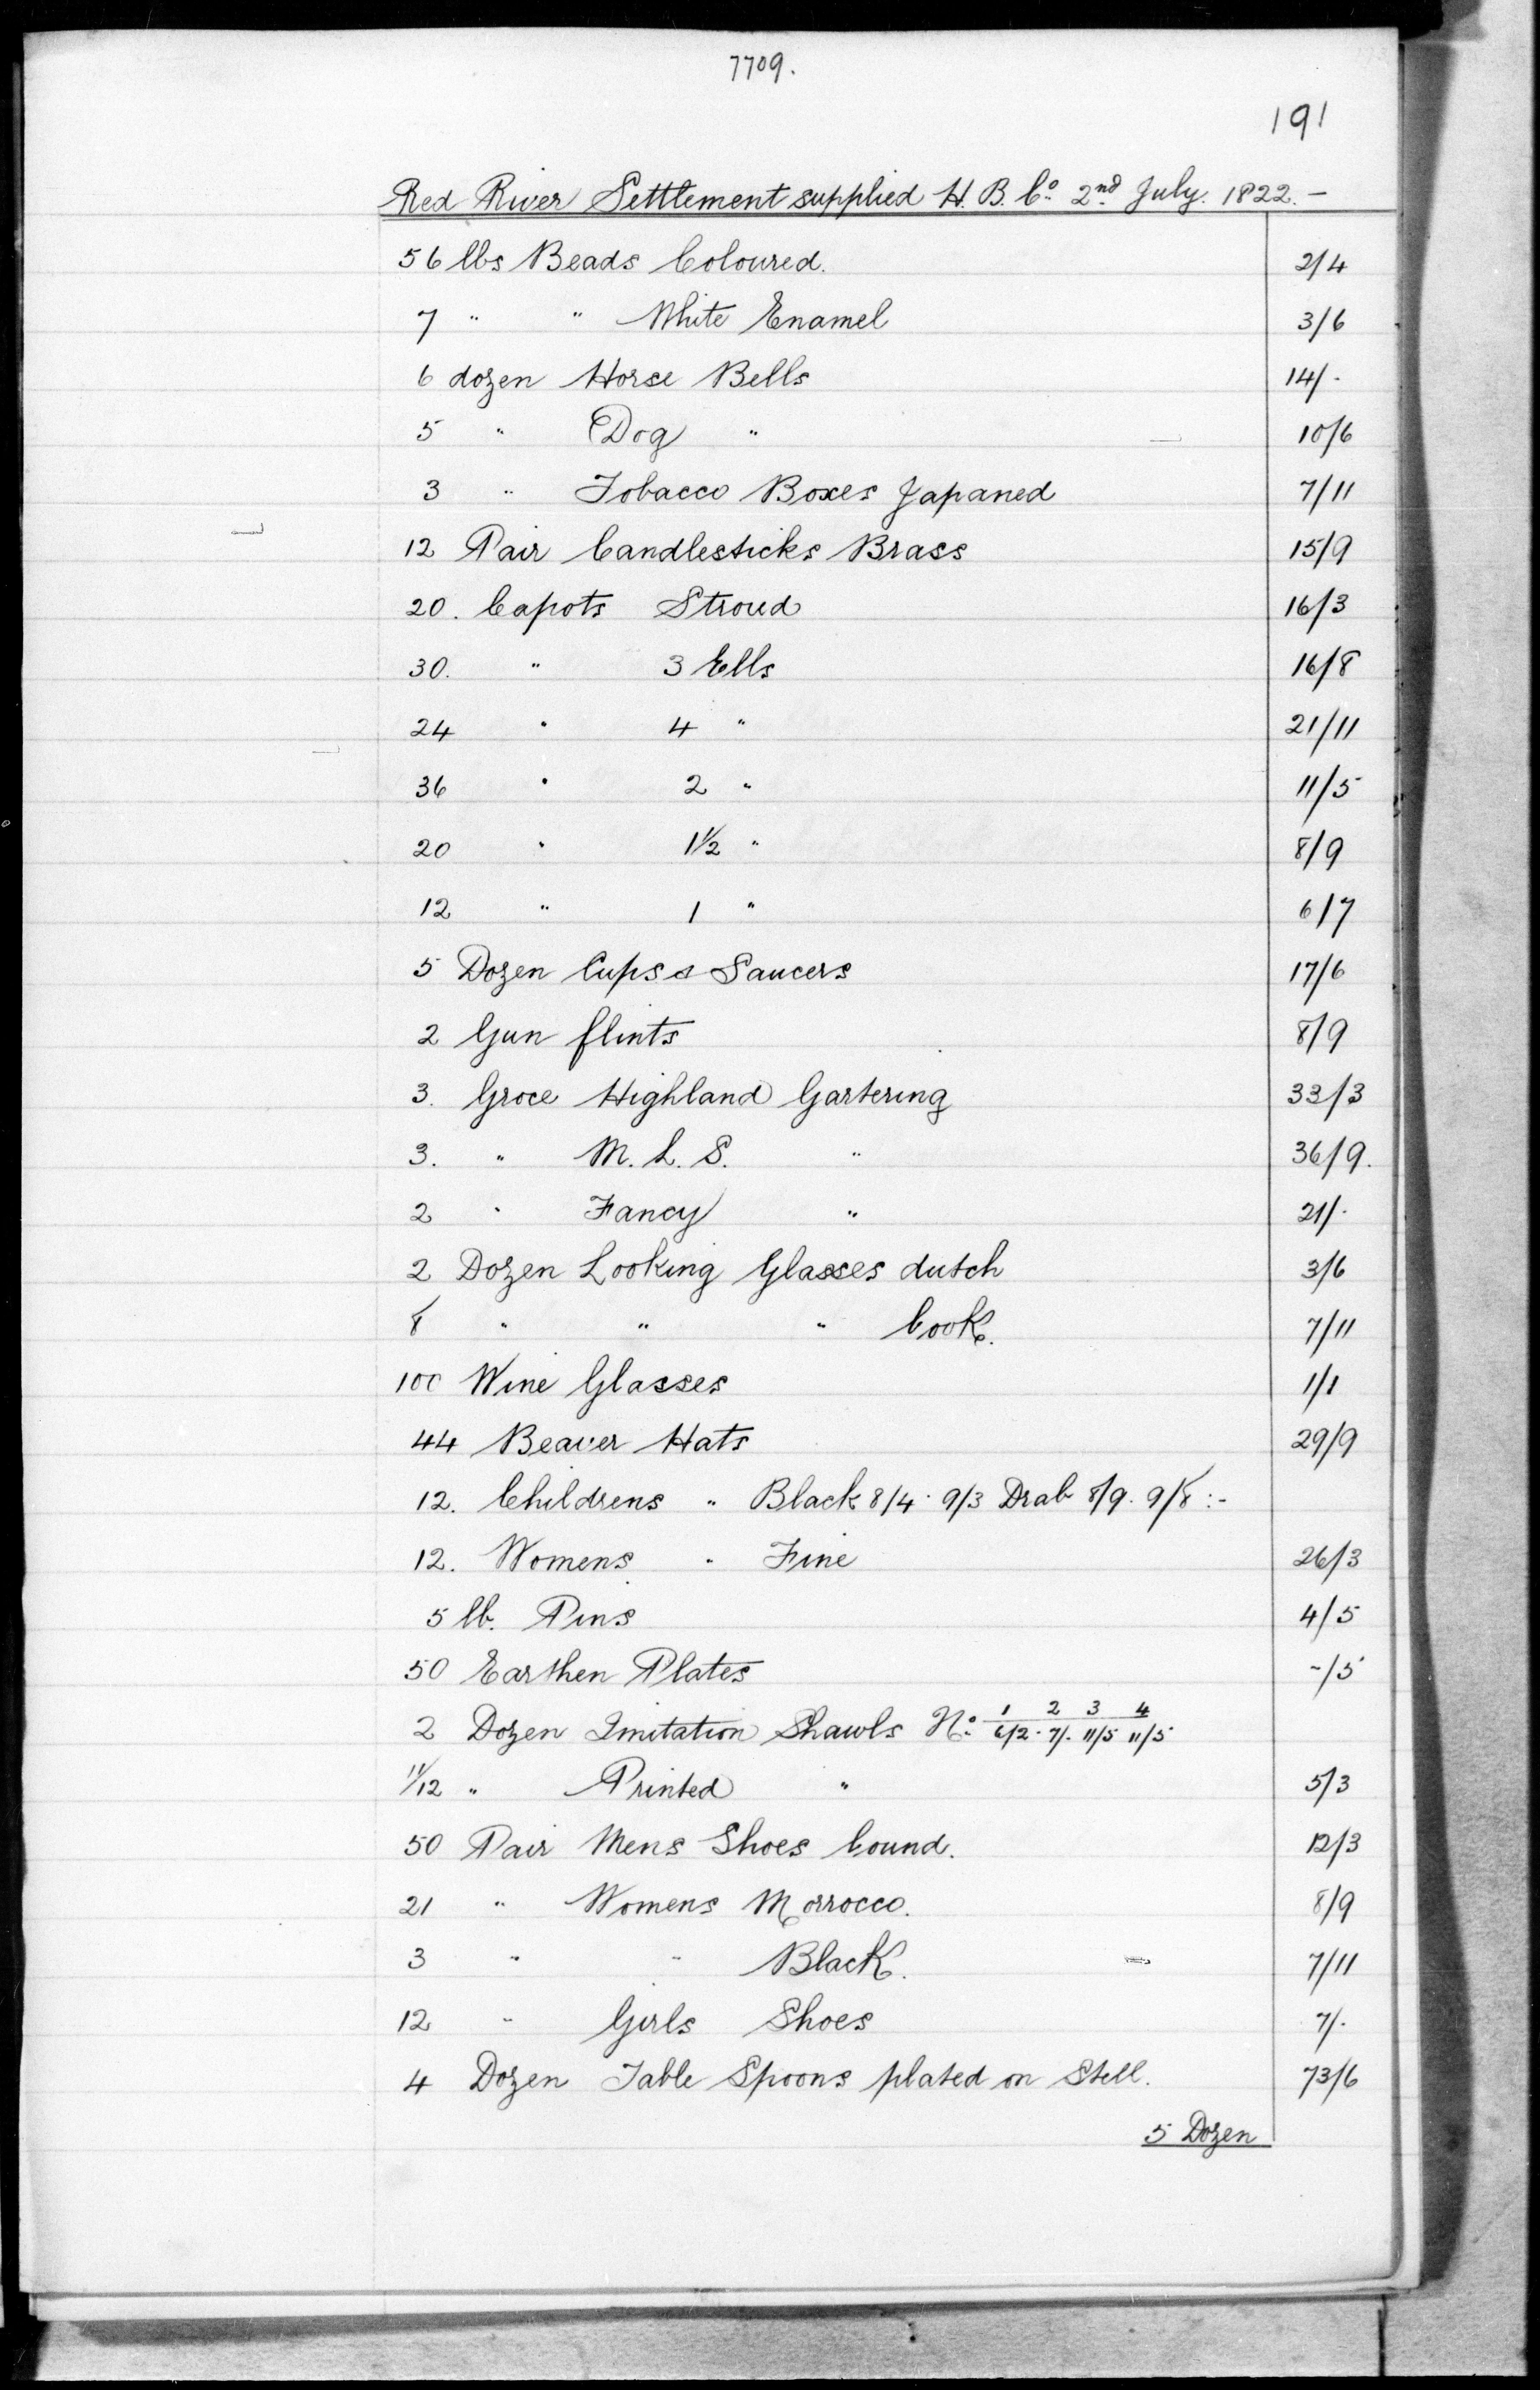 7709.
191
Red River Settlement supplied H. B. Co. 2nd July. 1822.-
56 lbs Beads Coloured. 2/4
7 " " White Enamel 3/6
6 dozen Horse Bells 14/-
5 " Dog " 10/6
3 " Tobacco Boxes Japaned 7/11
12 Pair Candlesticks Brass 15/9
20. Capots Stroud 16/3
30. " 3 Ells 16/8
24 " 4 " 21/11
36 " 2 " 11/5
20 " 1½ " 8/9
12 " 1 " 6/7
5 Dozen Cups & Saucers 17/6
2 Gun flints 8/9
3. Groce Highland Gartering 33/3
3. " M. L. S. " 36/9.
2 " Fancy " 21/-
2 Dozen Looking Glasses dutch 3/6
8 " " " Cook. 7/11
100 Wine Glasses 1/1
44 Beaver Hats 29/9
12. Childrens " Black 8/4. 9/3 Drab 8/9. 9/8 :-
12. Womens " Fine 26/3
5 lb. Pins 4/5
50 Earthen Plates -/5
2 Dozen Imitation Shawls No. 1 2 3 4
6/2. 7/. 11/5 11/5
11/12 " Printed " 5/3
50 Pair Mens Shoes bound. 12/3
21 " Womens Morrocco. 8/9
3 " " Black. 7/11
12 " Girls Shoes 7/.
4 Dozen Table Spoons plated on Stell. 73/6
5 Dozen